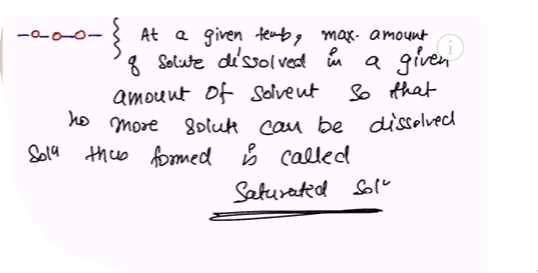 At a given temp, max. amount
of solute dissolved in a given
amount of solvent so that
no more solute can be dissolved
Solⁿ thus formed is called
Saturated Solⁿ